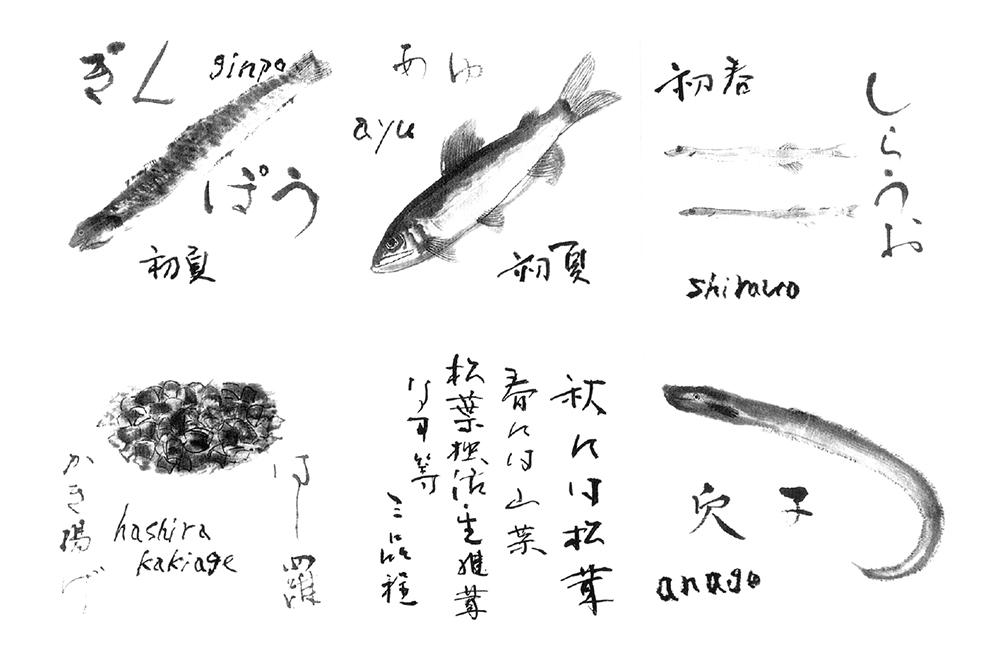 ぎん
ginpo
ぽう
初夏
あゆ
ayu
初夏
初春
しらうお
shirauo
はしら
かき揚げ
hashira
kakiage
秋には松茸
春には山菜
松葉独活・生椎茸
三品種
穴子
anago